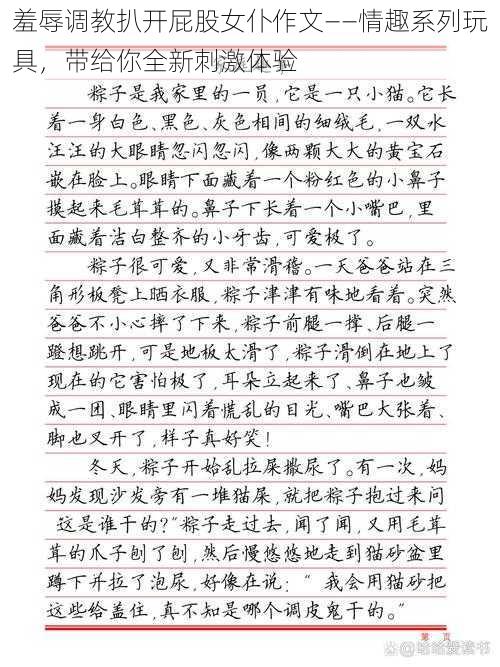 羞辱调教扒开屁股女仆作文——情趣系列玩
具，带给你全新刺激体验
粽子是我家里的一员,它是一只小猫。它长
着一身白色、黑色、灰色相间的细绒毛,一双水
汪汪的大眼睛忽闪忽闪,像两颗大大的黄宝石
嵌在脸上。眼睛下面藏着一个粉红色的小鼻子
摸起来毛茸茸的。鼻子下长着一个小嘴巴,里
面藏着洁白整齐的小牙齿,可爱极了。
粽子很可爱,又非常滑稽。一天爸爸站在三
角形板凳上晒衣服,粽子津津有味地看着。突然
爸爸不小心摔了下来,粽子前腿一撑、后腿一
蹬想跳开,可是地板太滑了,粽子滑倒在地上了
现在的它害怕极了,耳朵立起来了、鼻子也皱
成一团、眼睛里闪着慌乱的目光、嘴巴大张着、
脚也叉开了,样子真好笑!
冬天,粽子开始乱拉屎撒尿了。有一次,妈
妈发现沙发旁有一堆猫屎,就把粽子抱过来问
这是谁干的?"粽子走过去,闻了闻,又用毛茸
茸的爪子刨了刨,然后慢悠悠地走到猫砂盆里
蹲下并拉了泡尿,好像在说:"我会用猫砂把
这些给盖住,真不知是哪个调皮鬼干的。"
第 页
@哈哈爱读书